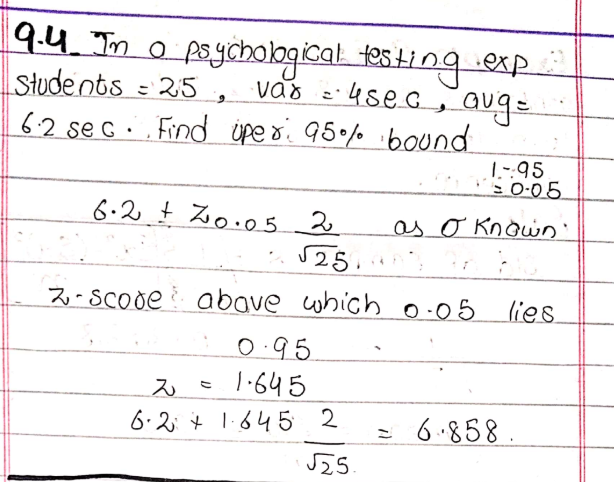 9.4 In a psychological testing exp
students = 25, var = 4sec, avg =
6.2 sec. Find uper 95% bound
1-.95
= 0.05
6.2 + z0.05 2/√25 as σ Known
z-score above which 0.05 lies
0.95
z = 1.645
6.2 + 1.645 2/√25 = 6.858.